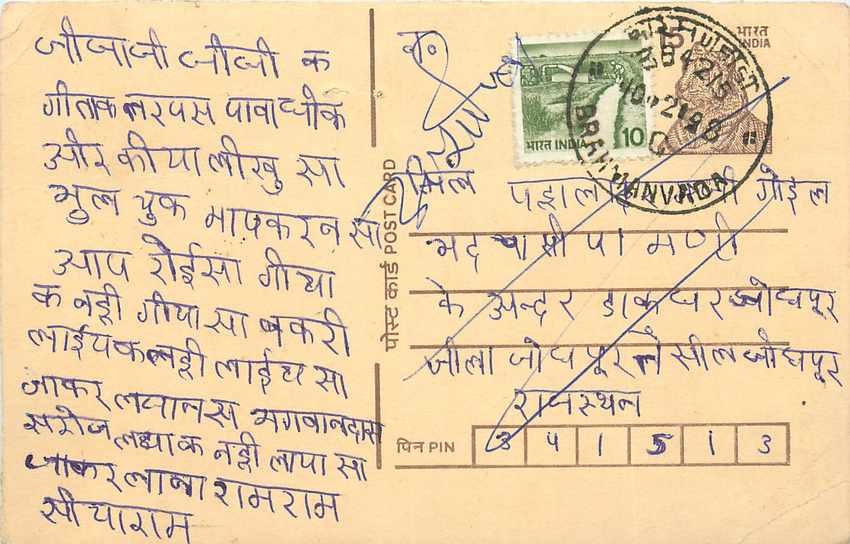 जीजाजी जीजी क
गीताक तरपस पावाधोक
ओर कीया लीखु सा
भुल चुक मापकरन सा
आप रोईसा गीया
क नही गीया सा बकरी
लाईय क नही लाईय सा
जाकर लवानस भगवानदास
सरोज लध्याक नही लाया सा
जाकर लाना रामराम
सीयाराम
भारत
INDIA
भारत INDIA 10
BRAHMANVADA
पोस्ट कार्ड POST CARD
मिल
गोइल
के अन्दर डाक घर जोधपुर
जीला जोधपुर तेसील जोधपुर
राजस्थन
पिन PIN 3 4 1 5 1 3